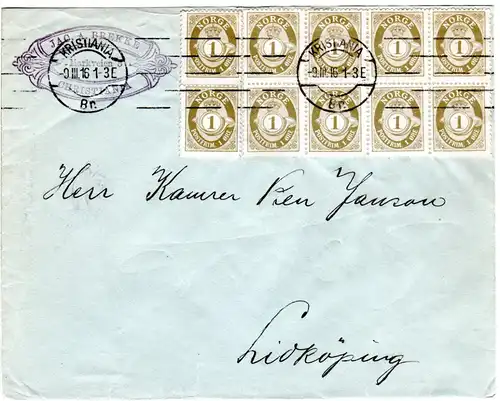 JAC. A. BREKKE
Markveien
CHRISTIANIA
KRISTIANIA
-9.III.16 1-3 E
Br.
KRISTIANIA
-9.III.16 1-3 E
Br.
NORGE NORGE NORGE NORGE NORGE
1 1 1 1 1
POSTFRIM. 1 ØRE POSTFRIM. 1 ØRE POSTFRIM. 1 ØRE POSTFRIM. 1 ØRE POSTFRIM. 1 ØRE
NORGE NORGE NORGE NORGE NORGE
1 1 1 1 1
POSTFRIM. 1 ØRE POSTFRIM. 1 ØRE POSTFRIM. 1 ØRE POSTFRIM. 1 ØRE POSTFRIM. 1 ØRE
Herr Kamrer Ben Janson
Lidköping